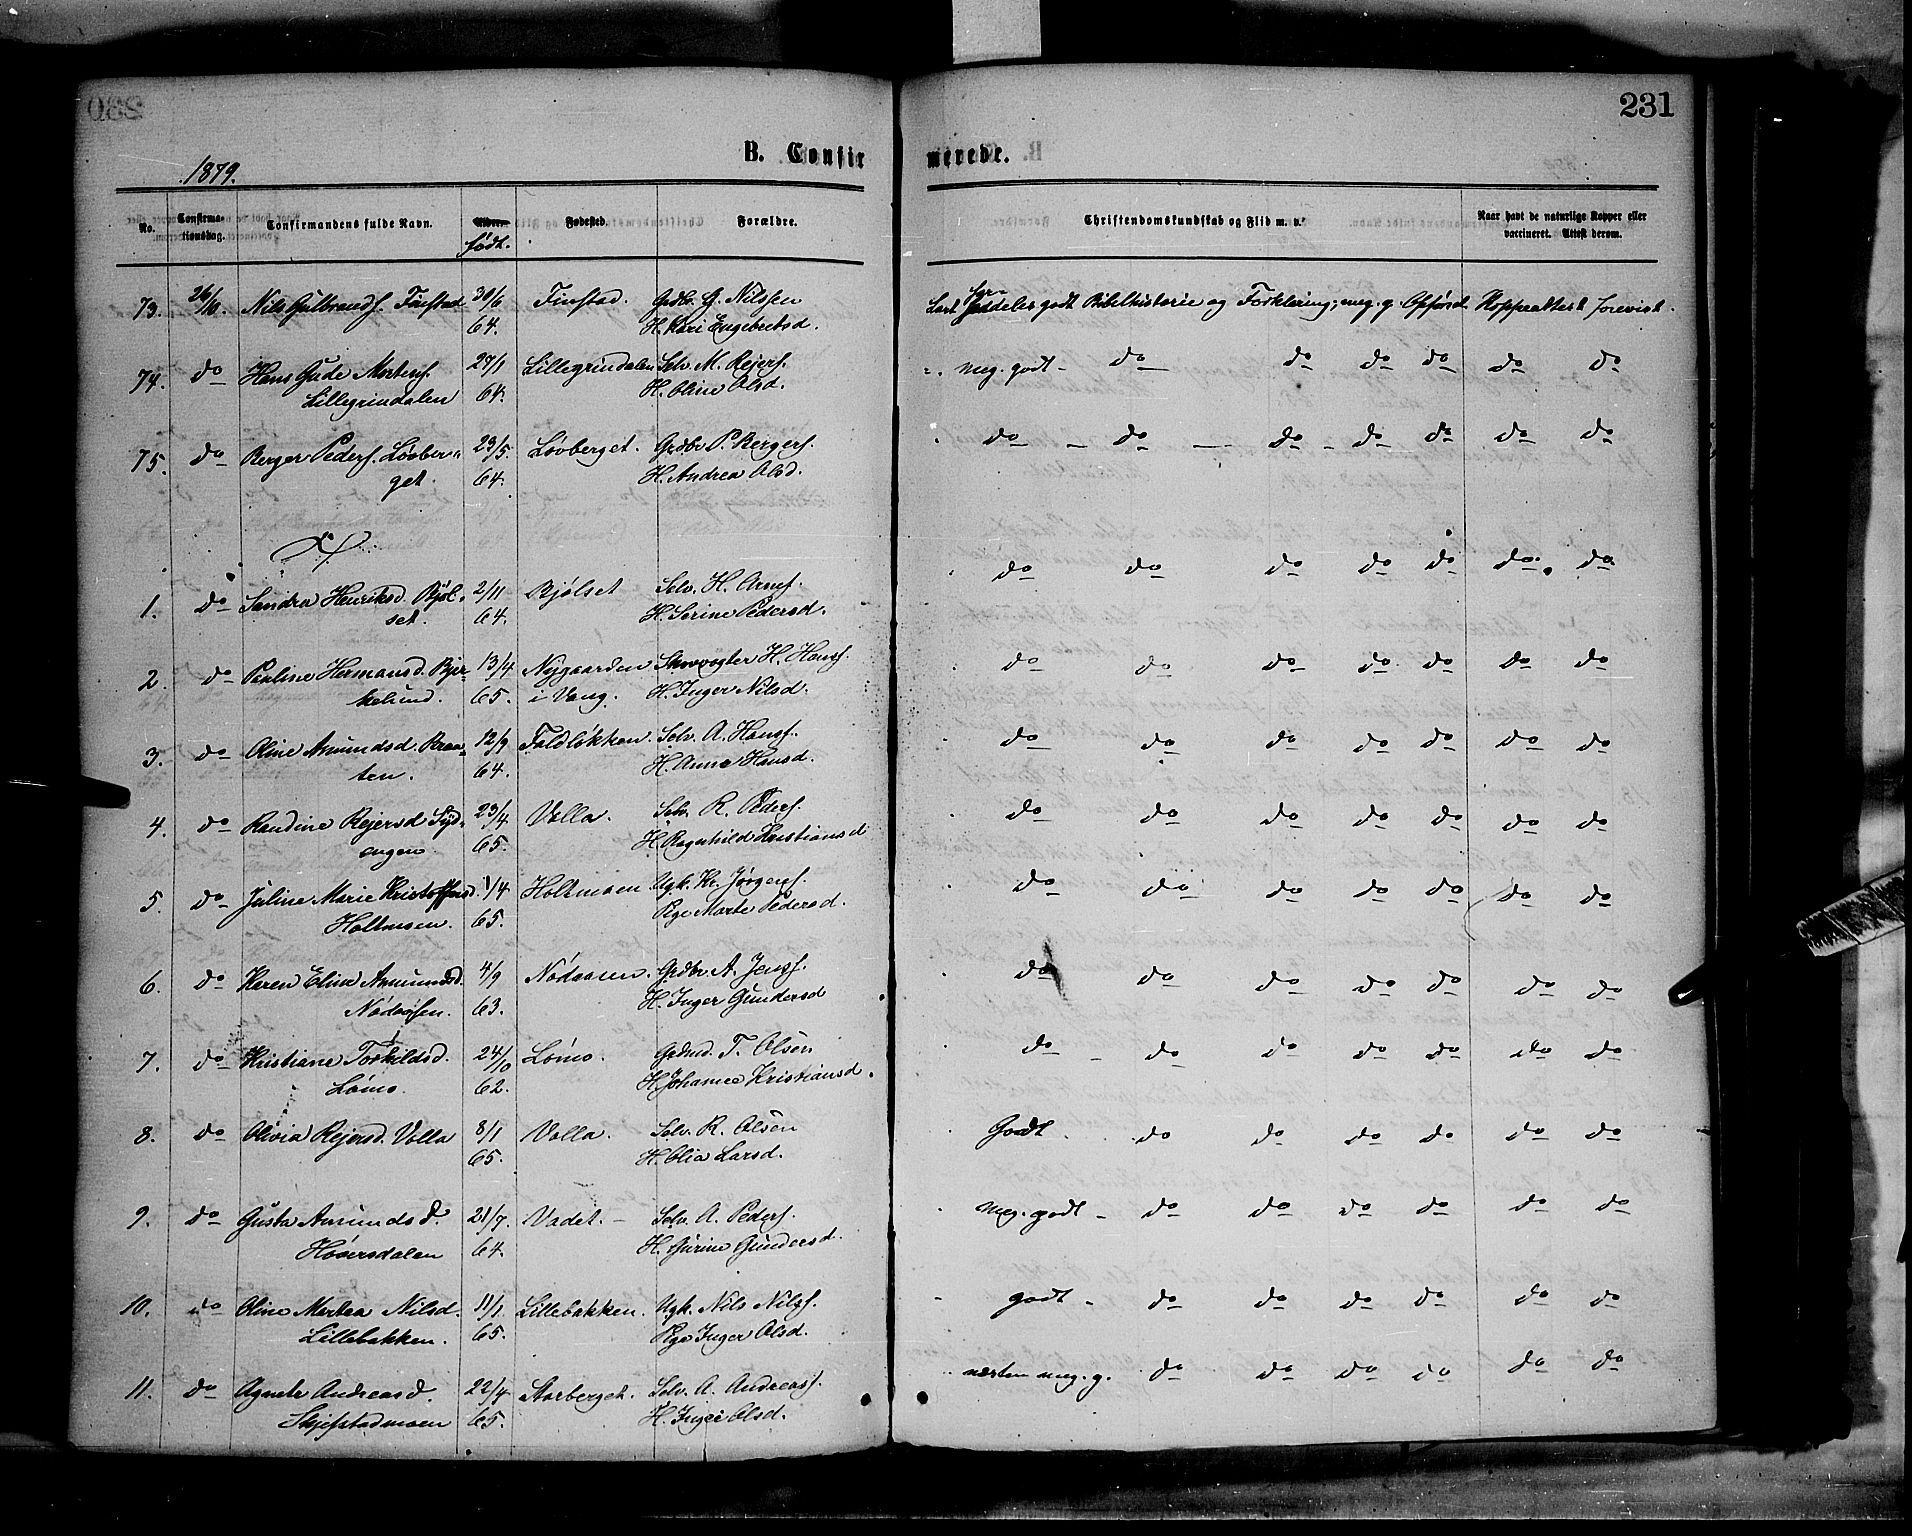 231
B. Confirmerede.
1879.
No. Confirmationsdag. Confirmandens fulde Navn. Alder. født. Fødested. Forældre. Christendomskundskab og Flid m. v. Naar havt de naturlige Kopper eller vaccineret. Attest derom.
73. 26/10. Nils Gulbrands. Finstad 30/6 Finstad. Grdbr. G. Nilssen
64. H. Kari Engebretsd.
godt Bibelhistorie og Forklaring; meg. g. Opførsel. Koppeattest forevist.
74. do Hans Gude Mortens. 27/1 Lillegrindalen Selv. M. Rejers. meg. godt - do do do do do do
Lillegrindalen 64. H. Oline Olsd.
75. do Berger Peders. Løvber- 23/5 Løvberget. Grdbr P. Bergers. do - do - do - do do do do
get. 64. H. Andrea Olsd.
1. do Sandra Henriksd. Bjøl- 2/11 Bjølset Selv. H. Arnes. do do do do do do do
set. 64. H. Serine Pedersd.
2. do Pauline Hermansd. Bjer- 13/4 Nygaarden H. Hans. do do do do do do do
kelund. 65. i Vang. H. Inger Nilsd.
3. do Oline Amundsd. Braa- 12/9 Foldløkken Selv. A. Hans. do do do do do do do
ten. 64. H. Anne Hansd.
4. do Randine Rejersd Syd- 23/4 Volla. Selv. R. Peders. do do do do do do do
engen 65. H. Ragnhild Kristiansd
5. do Juline Marie Kristoffersd. 1/4 Holtmoen Ugk. Kr. Jørgens. do do do do do do do
Holtmoen. 65. Pige Marte Pedersd.
6. do Karen Eline Amundsd. 4/9 Nødaasen. Grdbr A. Jens. do do do do do do do
63. H. Inger Gundersd
7. do Kristiane Torkildsd. 24/10 Lømo. T. Olsen do - do do do do do do
Lømo. 62. H. Johanne Kristiansd.
8. do Olivia Rejersd. Volla 8/1 Volla. Selv. R. Olsen Godt. do do do do do do
65. H. Olia Larsd.
9. do Gusta Amundsd. 21/7. Vadet. - Selv. A. Peders. meg. godt - do do do do do do
Høversdalen 64. H. Gurine Gundersd.
10. do Oline Martea Nilsd. 11/1. Lillebakken. Ugk. Nils Nils. godt - do do do do do do
Lillebakken. 65. Pige Inger Olsd.
11. do Agnete Andreasd. 22/4 Storberget. Selv. A. Andreas. næsten meg. g. do do do do do do
Skjefstadmoen 65. H. Inger Olsd.